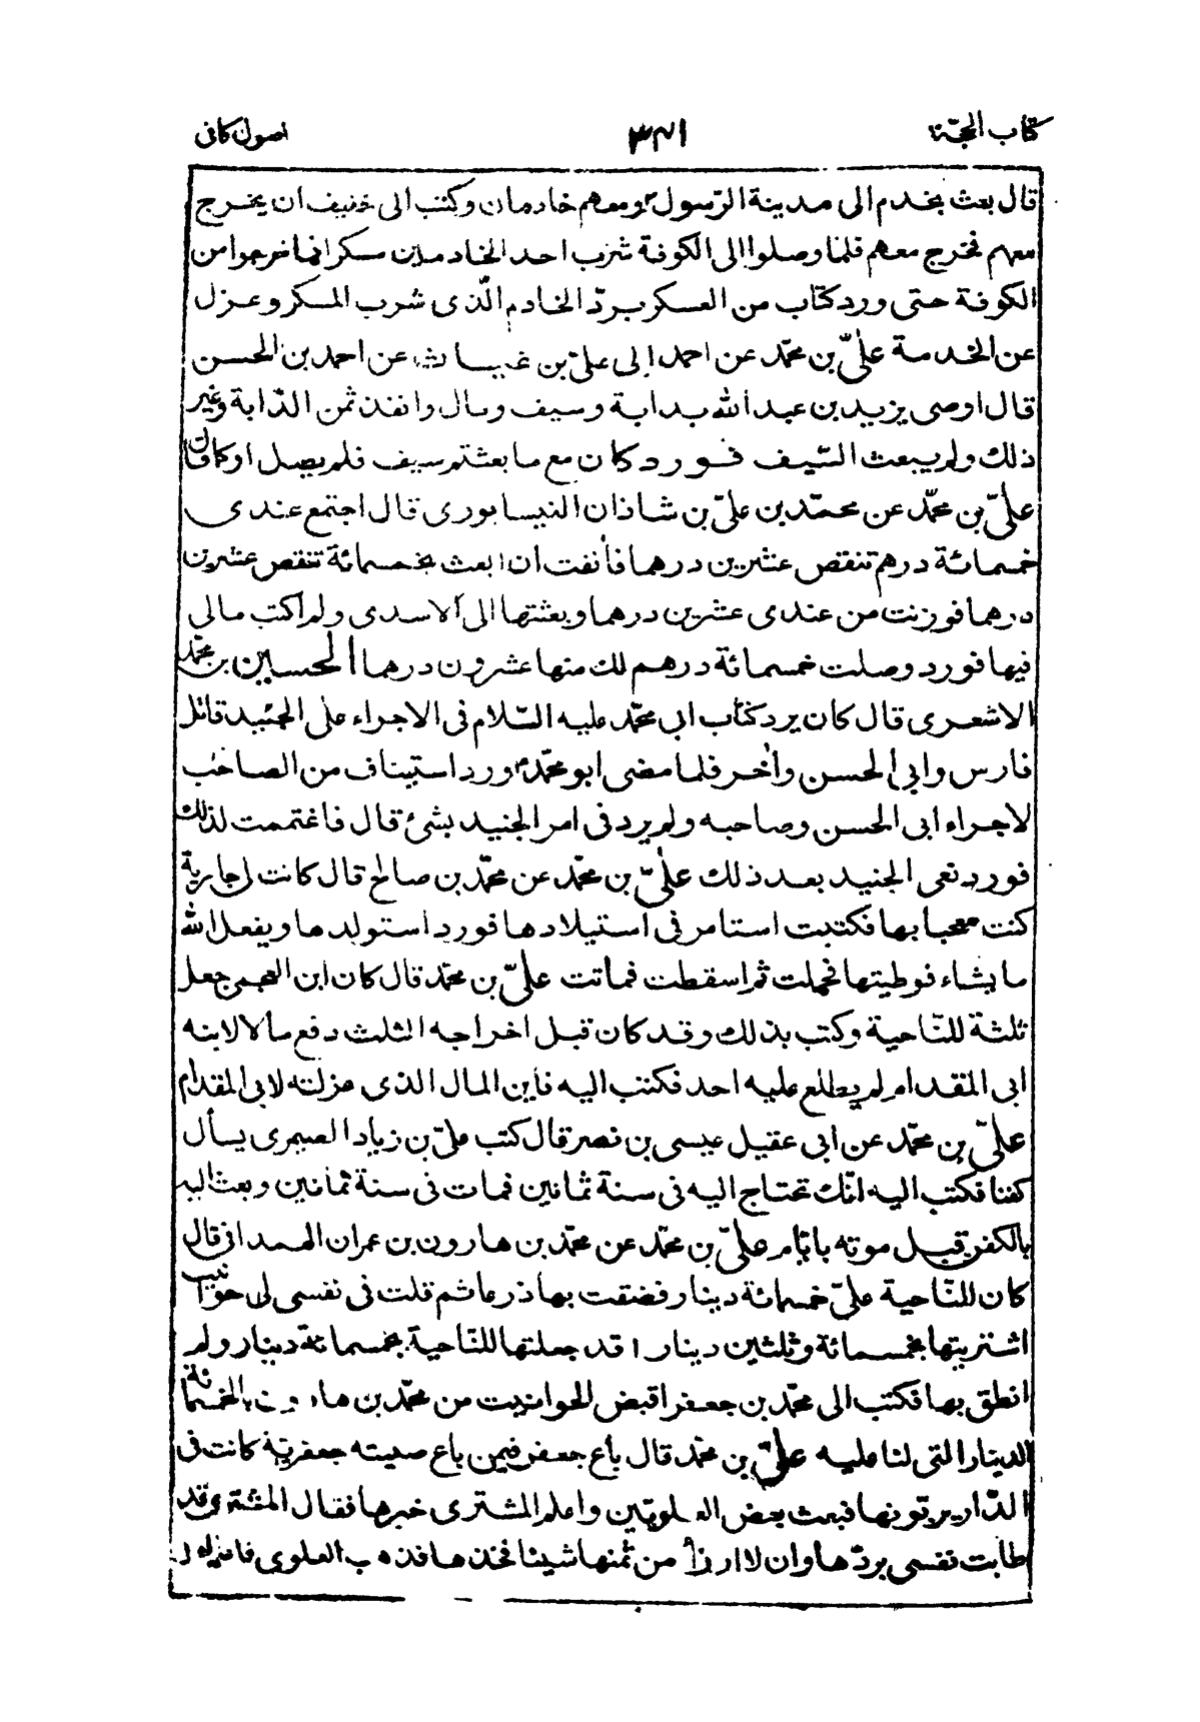 كتاب الحجّة ٣٤١ اصول كافى
قال بعث بخدم الى مدينة الرّسول ومعهم خادمان وكتب الى خفيف ان يخرج
معهم فخرج معهم فلمّا وصلوا الى الكوفة شرب احد الخادمين مسكرا فما خرجوا من
الكوفة حتى ورد كتاب من العسكر بردّ الخادم الّذى شرب المسكر وعزل
عن الخدمة علىّ بن محمّد عن احمد ابى على بن غياث عن احمد بن الحسن
قال اوصى يزيد بن عبد الله بدابة وسيف ومال وانفذ ثمن الدّابة وغير
ذلك ولم يبعث السّيف فورد كان مع ما بعثتم سيف فلم يصل او كما قال
علىّ بن محمّد عن محمّد بن علىّ بن شاذان النيسابورى قال اجتمع عندى
خمسمائة درهم تنقص عشرين درهما فأنفت ان ابعث بخمسمائة تنقص عشرين
درهما فوزنت من عندى عشرين درهما وبعثتها الى الاسدى ولم اكتب مالى
فيها فورد وصلت خمسمائة درهم لك منها عشرون درهما الحسين بن محمّد
الاشعرى قال كان يرد كتاب ابى محمّد عليه السّلام فى الاجراء على الجنيد قاتل
فارس وابى الحسن وأخر فلما مضى ابو محمّد ورد استيناف من الصاحب
لاجراء ابى الحسن وصاحبه ولم يرد فى امر الجنيد بشئ قال فاغتممت لذلك
فورد نعى الجنيد بعد ذلك علىّ بن محمّد عن محمّد بن صالح قال كانت لى جارية
كنت معجبا بها فكتبت استامر فى استيلادها فورد استولدها ويفعل الله
ما يشاء فوطيتها فحملت ثم اسقطت فماتت علىّ بن محمّد قال كان ابن العجمى جعل
ثلثة للنّاحية وكتب بذلك وقد كان قبل اخراجه الثلث دفع مالا لابنه
ابى المقدام لم يطلع عليه احد فكتب اليه فاين المال الذى عزلته لابى المقدام
علىّ بن محمّد عن ابى عقيل عيسى بن نصر قال كتب علىّ بن زياد الصيمرى يسأل
كفنا فكتب اليه انّك تحتاج اليه فى سنة ثمانين فمات فى سنة ثمانين وبعث اليه
بالكفن قبل موته بايّام علىّ بن محمّد عن محمّد بن هارون بن عمران الهمدانى قال
كان للنّاحية علىّ خمسمائة دينار فضقت بها ذرعا ثم قلت فى نفسى لى حوانيت
اشتريتها بخمسمائة وثلثين دينارا قد جعلتها للنّاحية بخمسمائة دينار ولم
انطق بها فكتب الى محمّد بن جعفر اقبض الحوانيت من محمّد بن هارون بالخمسمائة
الدينار التى لنا عليه علىّ بن محمّد قال باع جعفر فيمن باع صبيته جعفريّة كانت فى
الدّار يربّونها فبعث بعض العلويّين واعلم المشترى خبرها فقال المشترى قد
طابت نفسى بردّها وان لا ارزأ من ثمنها شيئا فخذها فذهب العلوى فاعلم